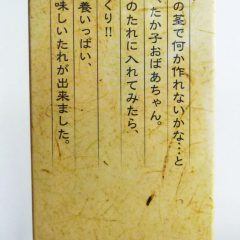 の茎で何か作れないかな…と
、たか子おばあちゃん。
のたれに入れてみたら、
くり!!
養いっぱい、
味しいたれが出来ました。